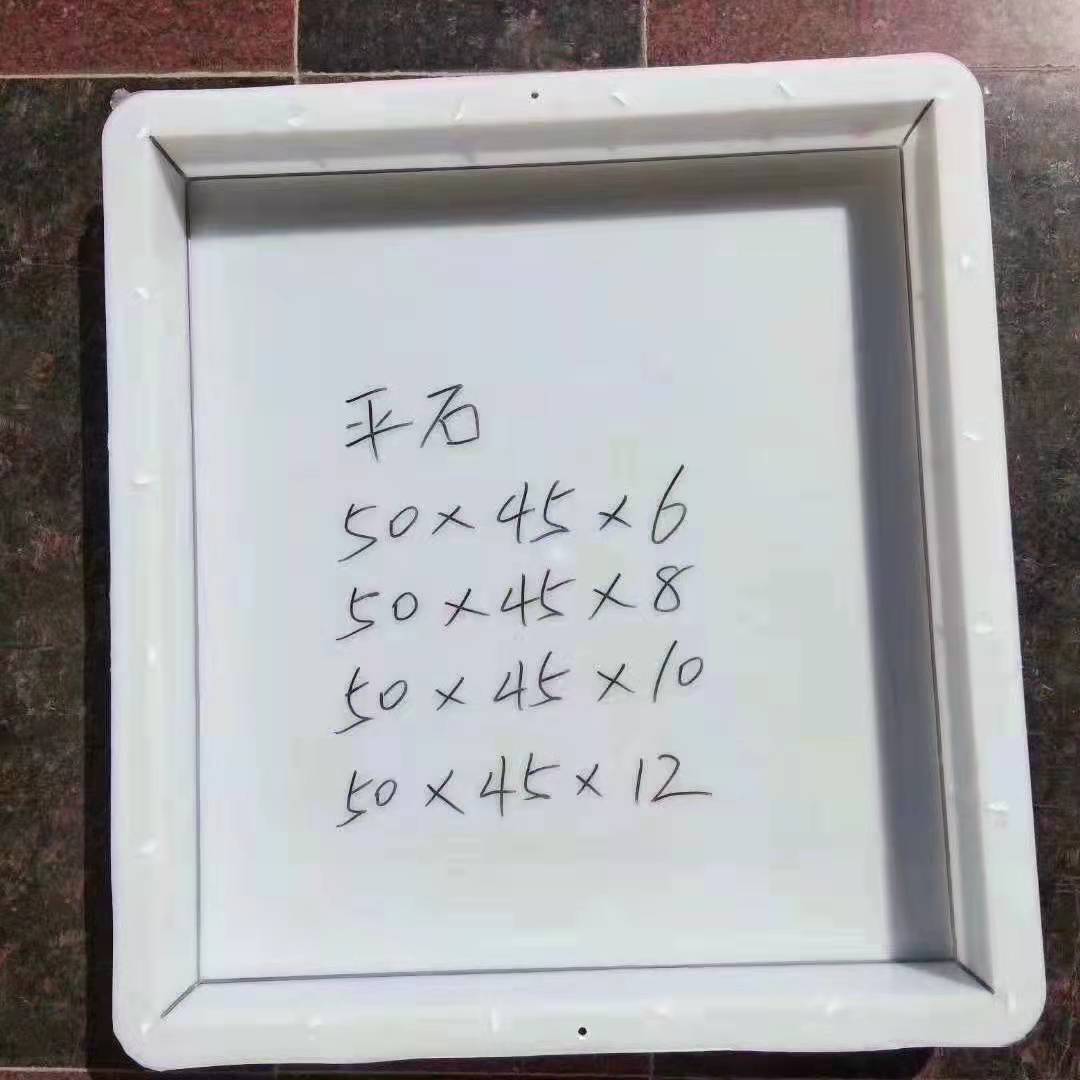 平石
50×45×6
50×45×8
50×45×10
50×45×12